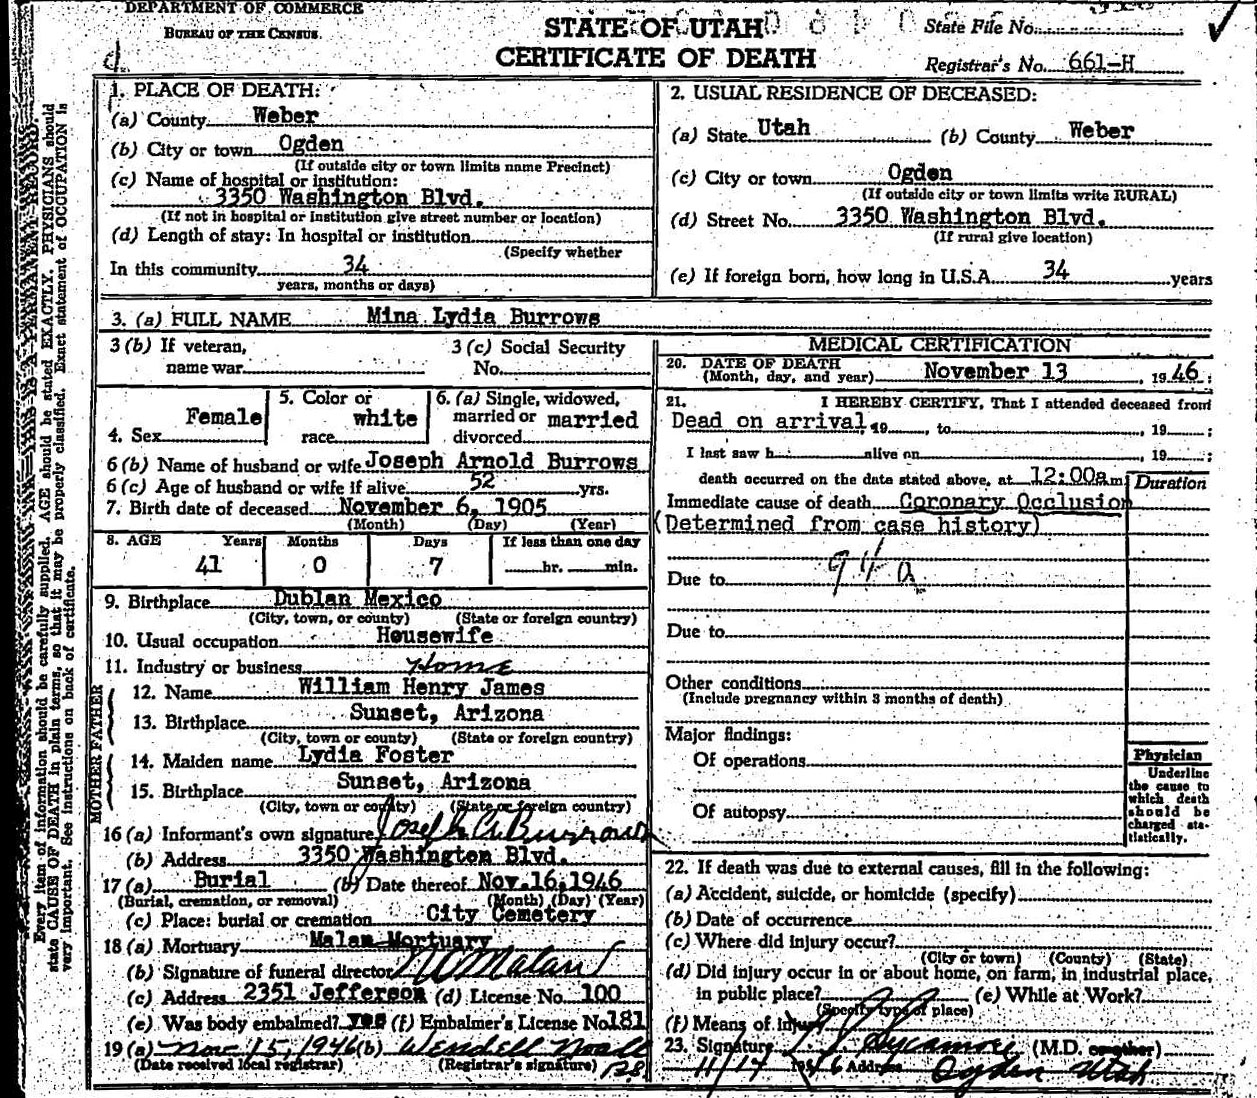 DEPARTMENT OF COMMERCE
BUREAU OF THE CENSUS
STATE OF UTAH
CERTIFICATE OF DEATH
State File No.
Registrar's No. 661-H
1. PLACE OF DEATH:
(a) County Weber
(b) City or town Ogden
(If outside city or town limits name Precinct)
(c) Name of hospital or institution:
3350 Washington Blvd.
(If not in hospital or institution give street number or location)
(d) Length of stay: In hospital or institution
(Specify whether
In this community 34
years, months or days)
2. USUAL RESIDENCE OF DECEASED:
(a) State Utah (b) County Weber
(c) City or town Ogden
(If outside city or town limits write RURAL)
(d) Street No. 3350 Washington Blvd.
(If rural give location)
(e) If foreign born, how long in U.S.A. 34 years
3. (a) FULL NAME Mina Lydia Burrows
3 (b) If veteran,
name war
3 (c) Social Security
No.
4. Sex Female
5. Color or
race white
6. (a) Single, widowed,
married or married
divorced
6 (b) Name of husband or wife Joseph Arnold Burrows
6 (c) Age of husband or wife if alive 52 yrs.
7. Birth date of deceased November 6, 1905
(Month) (Day) (Year)
8. AGE Years Months Days If less than one day
41 0 7 hr. min.
9. Birthplace Dublan Mexico
(City, town, or county) (State or foreign country)
10. Usual occupation Housewife
11. Industry or business Home
FATHER
12. Name William Henry James
13. Birthplace Sunset, Arizona
(City, town or county) (State or foreign country)
MOTHER
14. Maiden name Lydia Foster
15. Birthplace Sunset, Arizona
(City, town or county) (State or foreign country)
16 (a) Informant's own signature Joseph A. Burrows
(b) Address 3350 Washington Blvd.
17 (a) Burial (b) Date thereof Nov.16,1946
(Burial, cremation, or removal) (Month) (Day) (Year)
(c) Place: burial or cremation City Cemetery
18 (a) Mortuary Malan Mortuary
(b) Signature of funeral director Malan
(c) Address 2351 Jefferson (d) License No. 100
(e) Was body embalmed? yes (f) Embalmer's License No. 181
19 (a) Nov 15, 1946 (b) Wendell Noall
(Date received local registrar) (Registrar's signature)
MEDICAL CERTIFICATION
20. DATE OF DEATH
(Month, day, and year) November 13, 1946;
21. I HEREBY CERTIFY, That I attended deceased from
Dead on arrival, 19 , to , 19 ;
I last saw h alive on , 19 ;
death occurred on the date stated above, at 12:00a m.
Duration
Immediate cause of death Coronary Occlusion
(Determined from case history)
94a
Due to
Due to
Other conditions
(Include pregnancy within 3 months of death)
Major findings:
Of operations
Of autopsy
Physician
Underline
the cause to
which death
should be
charged sta-
tistically.
22. If death was due to external causes, fill in the following:
(a) Accident, suicide, or homicide (specify)
(b) Date of occurrence
(c) Where did injury occur?
(City or town) (County) (State)
(d) Did injury occur in or about home, on farm, in industrial place,
in public place? (e) While at Work?
(Specify type of place)
(f) Means of injury
23. Signature Sycamore (M.D. or other)
11/17 1946 Address Ogden Utah
Every item of information should be carefully supplied. AGE should be stated EXACTLY. PHYSICIANS should
state CAUSE OF DEATH in plain terms, so that it may be properly classified. Exact statement of OCCUPATION is
very important. See instructions on back of certificate.